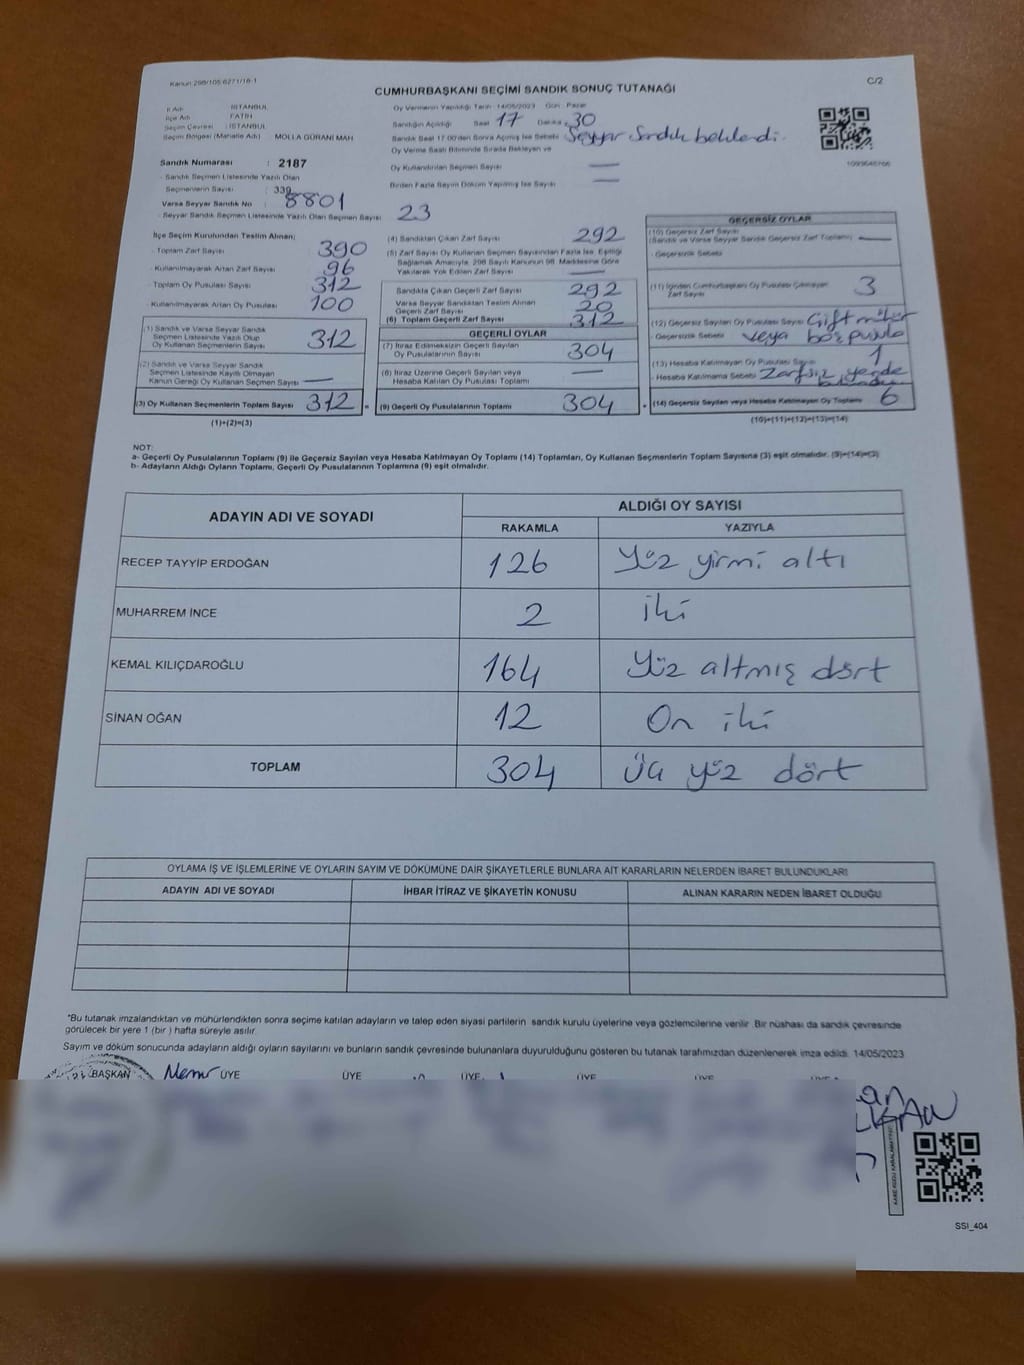 Kanun:298/105;6271/18-1
C/2
CUMHURBAŞKANI SEÇİMİ SANDIK SONUÇ TUTANAĞI
İl Adı : İSTANBUL
İlçe Adı : FATİH
Seçim Çevresi : İSTANBUL
Seçim Bölgesi (Mahalle Adı) : MOLLA GÜRANİ MAH.
Oy Vermenin Yapıldığı Tarih : 14/05/2023 Gün : Pazar
Sandığın Açıldığı Saat 17 Dakika 30
Sandık Saat 17:00'den Sonra Açılmış İse Sebebi Seyyar Sandık beklendi.
Oy Verme Saati Bitiminde Sırada Bekleyen ve
Oy Kullandırılan Seçmen Sayısı —
Birden Fazla Sayım Döküm Yapılmış ise Sayısı —
Sandık Numarası : 2187
- Sandık Seçmen Listesinde Yazılı Olan
Seçmenlerin Sayısı : 339
Varsa Seyyar Sandık No : 8801
- Seyyar Sandık Seçmen Listesinde Yazılı Olan Seçmen Sayısı 23
İlçe Seçim Kurulundan Teslim Alınan;
- Toplam Zarf Sayısı 390
- Kullanılmayarak Artan Zarf Sayısı 96
- Toplam Oy Pusulası Sayısı 312
- Kullanılmayarak Artan Oy Pusulası 100
(1) Sandık ve Varsa Seyyar Sandık
Seçmen Listesinde Yazılı Olup
Oy Kullanan Seçmenlerin Sayısı 312
(2) Sandık ve Varsa Seyyar Sandık
Seçmen Listesinde Kayıtlı Olmayan
Kanun Gereği Oy Kullanan Seçmen Sayısı —
(3) Oy Kullanan Seçmenlerin Toplam Sayısı 312 =
(1)+(2)=(3)
(4) Sandıktan Çıkan Zarf Sayısı 292
(5) Zarf Sayısı Oy Kullanan Seçmen Sayısından Fazla İse, Eşitliği
Sağlamak Amacıyla, 298 Sayılı Kanunun 98. Maddesine Göre
Yakılarak Yok Edilen Zarf Sayısı —
Sandıkta Çıkan Geçerli Zarf Sayısı 292
Varsa Seyyar Sandıktan Teslim Alınan
Geçerli Zarf Sayısı 20
(6) Toplam Geçerli Zarf Sayısı 312
GEÇERLİ OYLAR
(7) İtiraz Edilmeksizin Geçerli Sayılan
Oy Pusulalarının Sayısı 304
(8) İtiraz Üzerine Geçerli Sayılan veya
Hesaba Katılan Oy Pusulası Toplamı —
(9) Geçerli Oy Pusulalarının Toplamı 304 +
GEÇERSİZ OYLAR
(10) Geçersiz Zarf Sayısı
(Sandık ve Varsa Seyyar Sandık Geçersiz Zarf Toplamı) —
- Geçersizlik Sebebi
(11) İçinden Cumhurbaşkanı Oy Pusulası Çıkmayan
Zarf Sayısı 3
(12) Geçersiz Sayılan Oy Pusulası Sayısı Çift mühür
- Geçersizlik Sebebi veya boş pusula
(13) Hesaba Katılmayan Oy Pusulası Sayısı 1
- Hesaba Katılmama Sebebi Zarfsız yerde
(14) Geçersiz Sayılan veya Hesaba Katılmayan Oy Toplamı 6
(10)+(11)+(12)+(13)=(14)
NOT:
a- Geçerli Oy Pusulalarının Toplamı (9) ile Geçersiz Sayılan veya Hesaba Katılmayan Oy Toplamı (14) Toplamları, Oy Kullanan Seçmenlerin Toplam Sayısına (3) eşit olmalıdır. (9)+(14)=(3)
b- Adayların Aldığı Oyların Toplamı, Geçerli Oy Pusulalarının Toplamına (9) eşit olmalıdır.
ADAYIN ADI VE SOYADI
ALDIĞI OY SAYISI
RAKAMLA YAZIYLA
RECEP TAYYİP ERDOĞAN 126 Yüz yirmi altı
MUHARREM İNCE 2 iki
KEMAL KILIÇDAROĞLU 164 Yüz altmış dört
SİNAN OĞAN 12 On iki
TOPLAM 304 Üç yüz dört
OYLAMA İŞ VE İŞLEMLERİNE VE OYLARIN SAYIM VE DÖKÜMÜNE DAİR ŞİKAYETLERLE BUNLARA AİT KARARLARIN NELERDEN İBARET BULUNDUKLARI
ADAYIN ADI VE SOYADI İHBAR İTİRAZ VE ŞİKAYETİN KONUSU ALINAN KARARIN NEDEN İBARET OLDUĞU
*Bu tutanak imzalandıktan ve mühürlendikten sonra seçime katılan adayların ve talep eden siyasi partilerin sandık kurulu üyelerine veya gözlemcilerine verilir. Bir nüshası da sandık çevresinde
görülecek bir yere 1 (bir ) hafta süreyle asılır.
Sayım ve döküm sonucunda adayların aldığı oyların sayılarını ve bunların sandık çevresinde bulunanlara duyurulduğunu gösteren bu tutanak tarafımızdan düzenlenerek imza edildi. 14/05/2023
BAŞKAN ÜYE ÜYE ÜYE ÜYE ÜYE ÜYE
SSİ_404